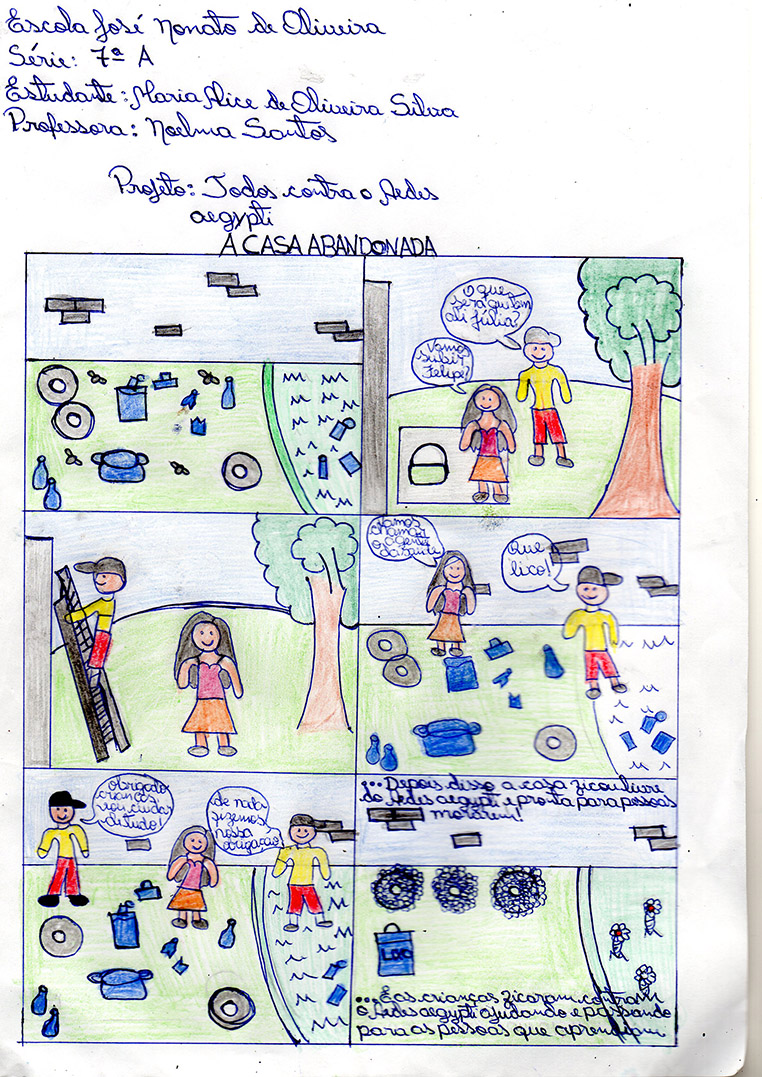 Escola José Nonato de Oliveira
Série: 7ª A
Estudante: Maria Alice de Oliveira Silva
Professora: Noelma Santos
Projeto: Todos contra o Aedes
aegypti
A CASA ABANDONADA
O que
será que tem
ali Júlia?
Vamos
subir
Felipe?
Vamos
chamar
o agente
da saúde
Que
lixo!
Obrigado
crianças
vou cuidar
de tudo!
de nada
fizemos
nossa
obrigação!
... Depois disso a casa ficou livre
do Aedes aegypti e pronta para pessoas
morarem!
LIXO
... E as crianças ficaram contra
o Aedes aegypti ajudando e passando
para as pessoas que